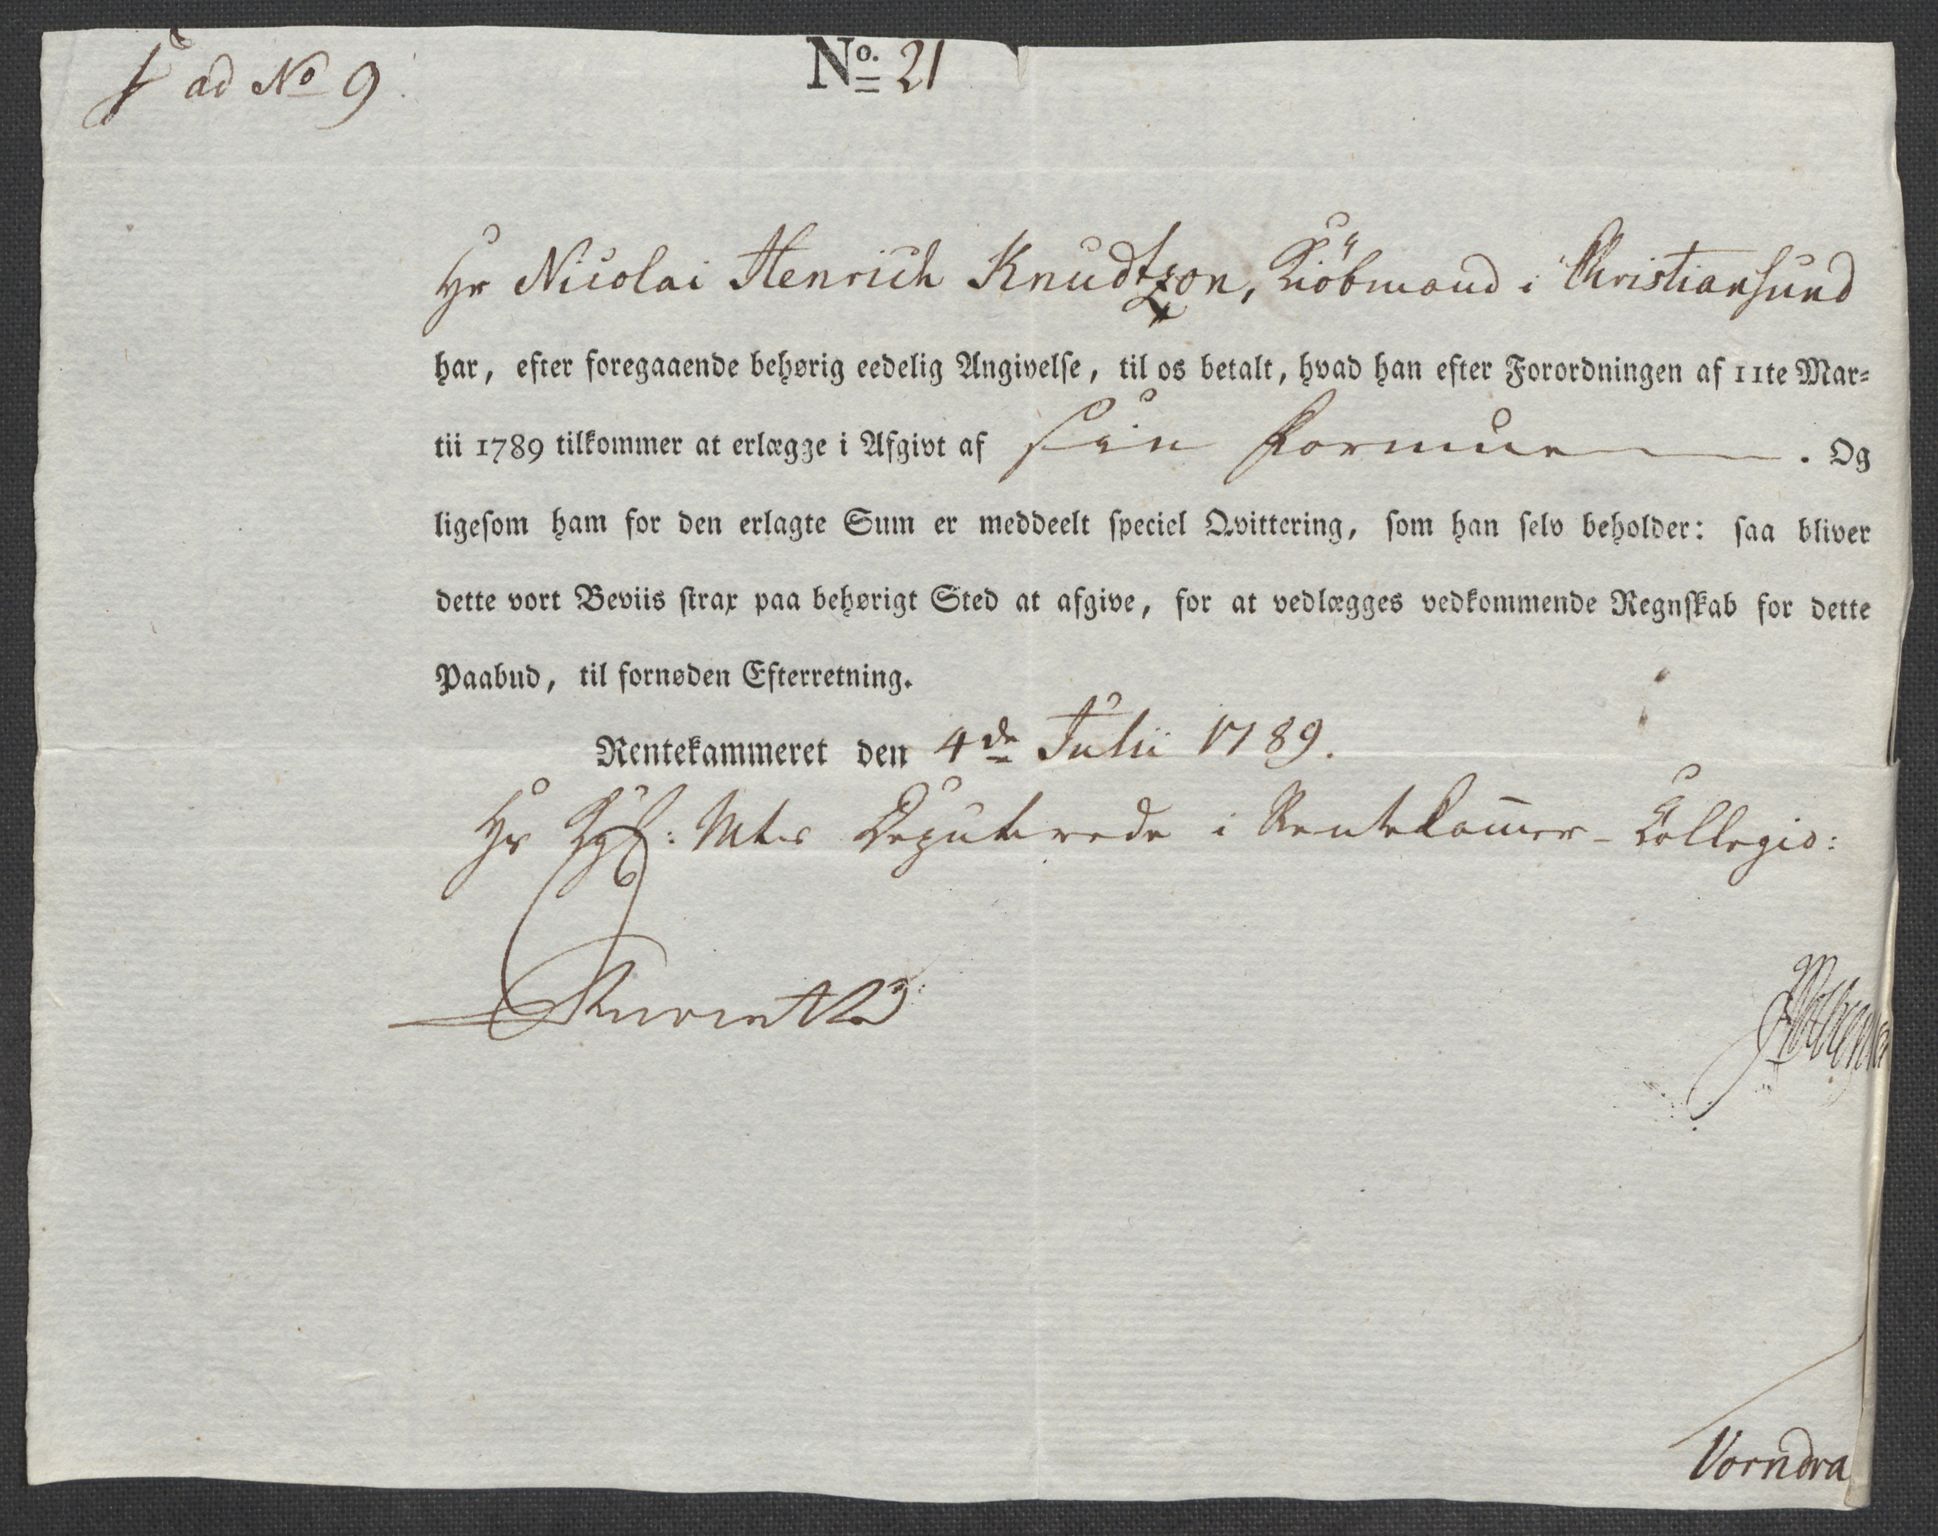 ad No 9
No. 21
Hr Nicolai Henrich Knudtzon, Kiöbmand i Christiansund
har, efter foregaaende behørig eedelig Angivelse, til os betalt, hvad han efter Forordningen af 11te Mar-
tii 1789 tilkommer at erlægge i Afgivt af sin Formue. Og
ligesom ham for den erlagte Sum er meddeelt speciel Qvittering, som han selv beholder: saa bliver
dette vort Beviis strax paa behørigt Sted at afgive, for at vedlægges vedkommende Regnskab for dette
Paabud, til fornøden Efterretning.
Rentekammeret den 4de Julii 1789.
Hr Kgl: Mts Deputerede i Rentekammer-Collegio:
Vorndra